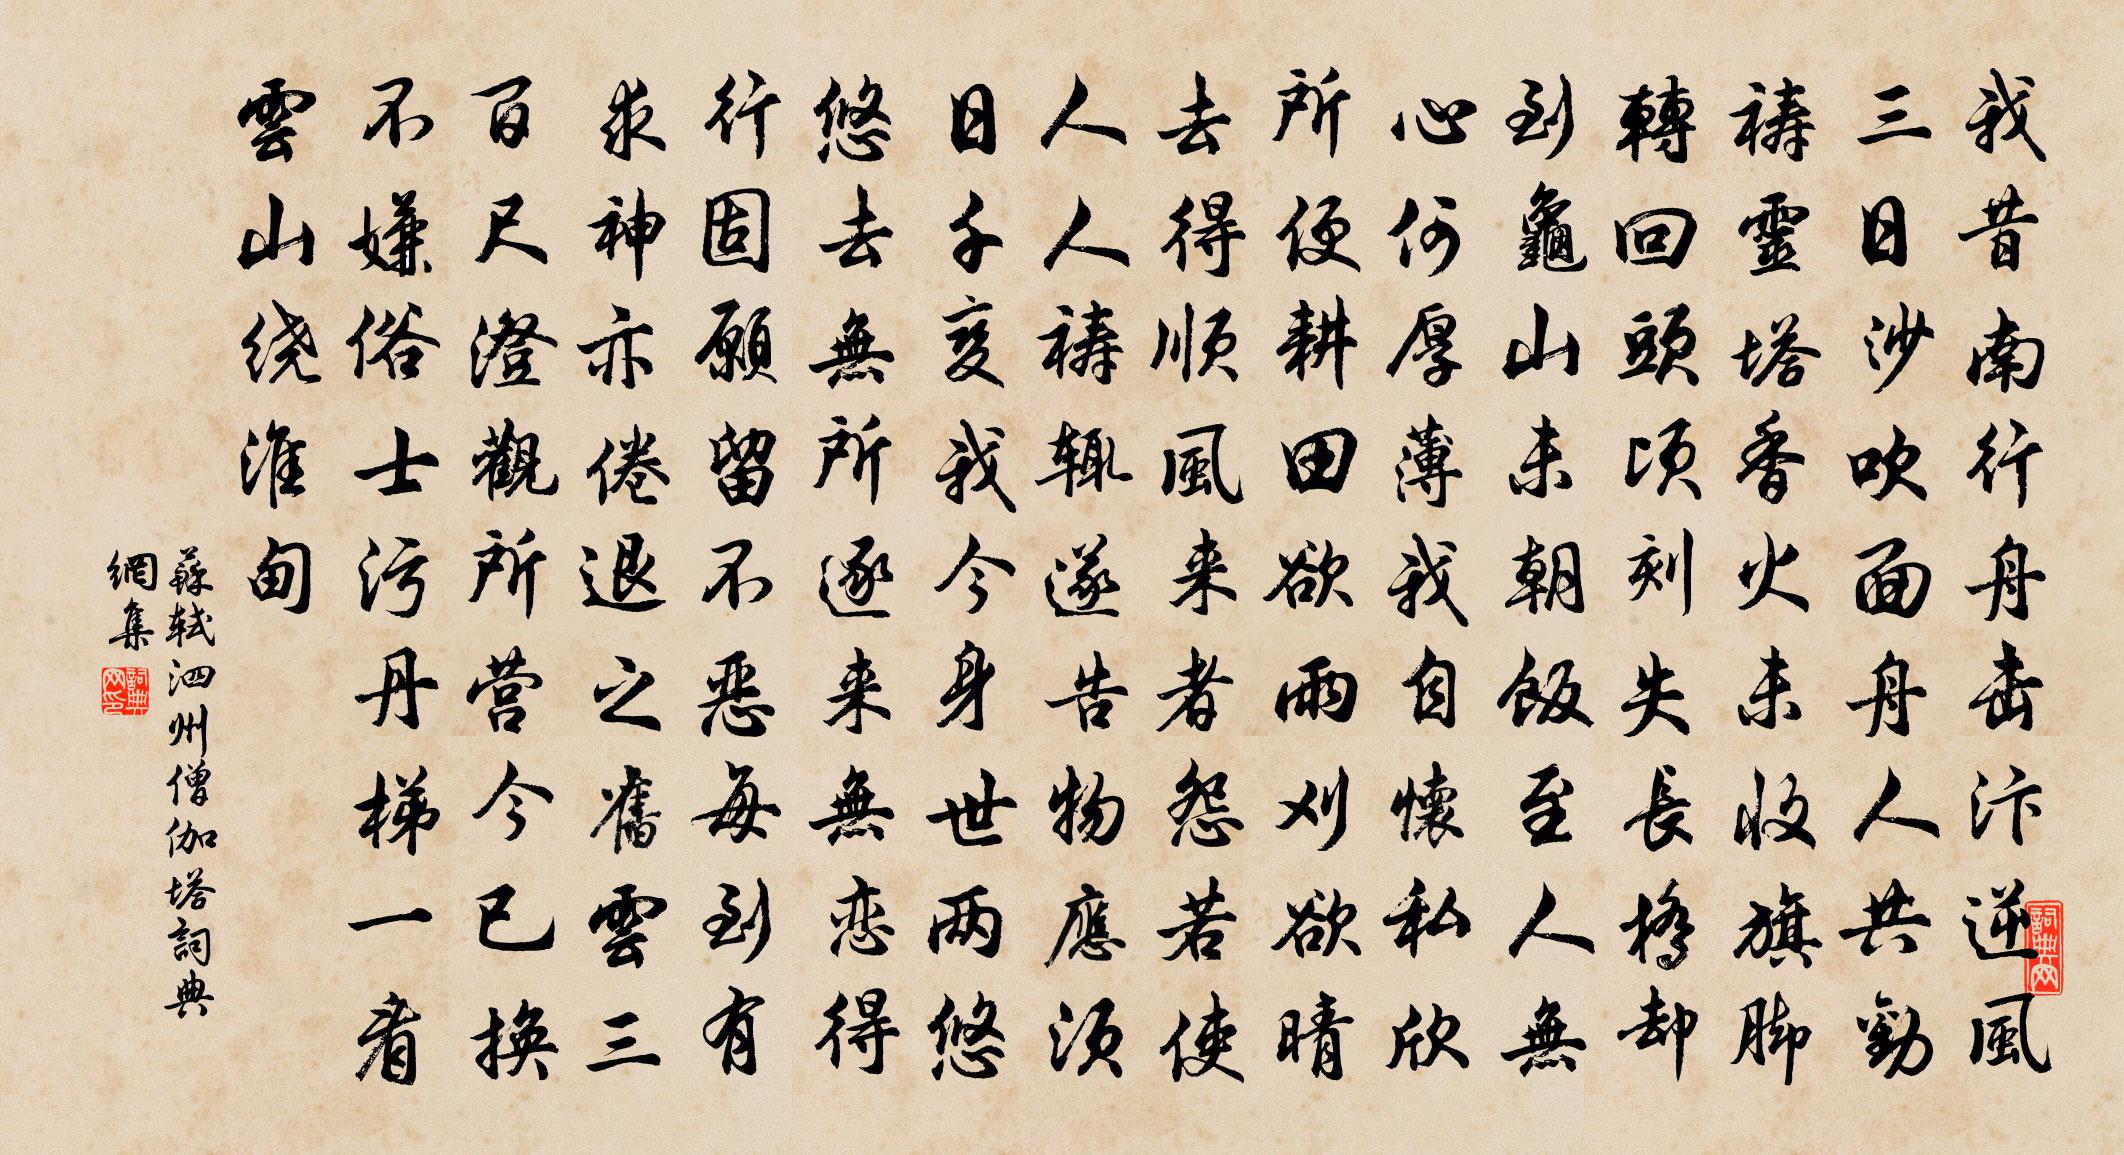 我昔南行舟击汴逆風
三日沙吹面舟人共勸
禱靈塔香火未收旗脚
轉回頭頃刻失長橋却
到龜山未朝飯至人無
心何厚薄我自懷私欣
所便耕田欲雨刈欲晴
去得順風来者怨若使
人人禱辄遂告物應須
日千变我今身世两悠
悠去無所逐来無恋得
行固願留不恶每到有
求神亦倦退之舊雲三
百尺澄觀所营今已换
不嫌俗士污丹梯一看
雲山绕淮甸
蘇轼泗州僧伽塔詞典
網集
詞典网
詞典网印